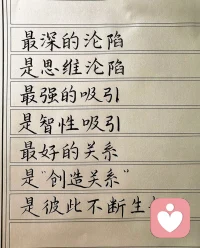 最深的沦陷
是思维沦陷
最强的吸引
是智性吸引
最好的关系
是“创造关系”
是彼此不断生